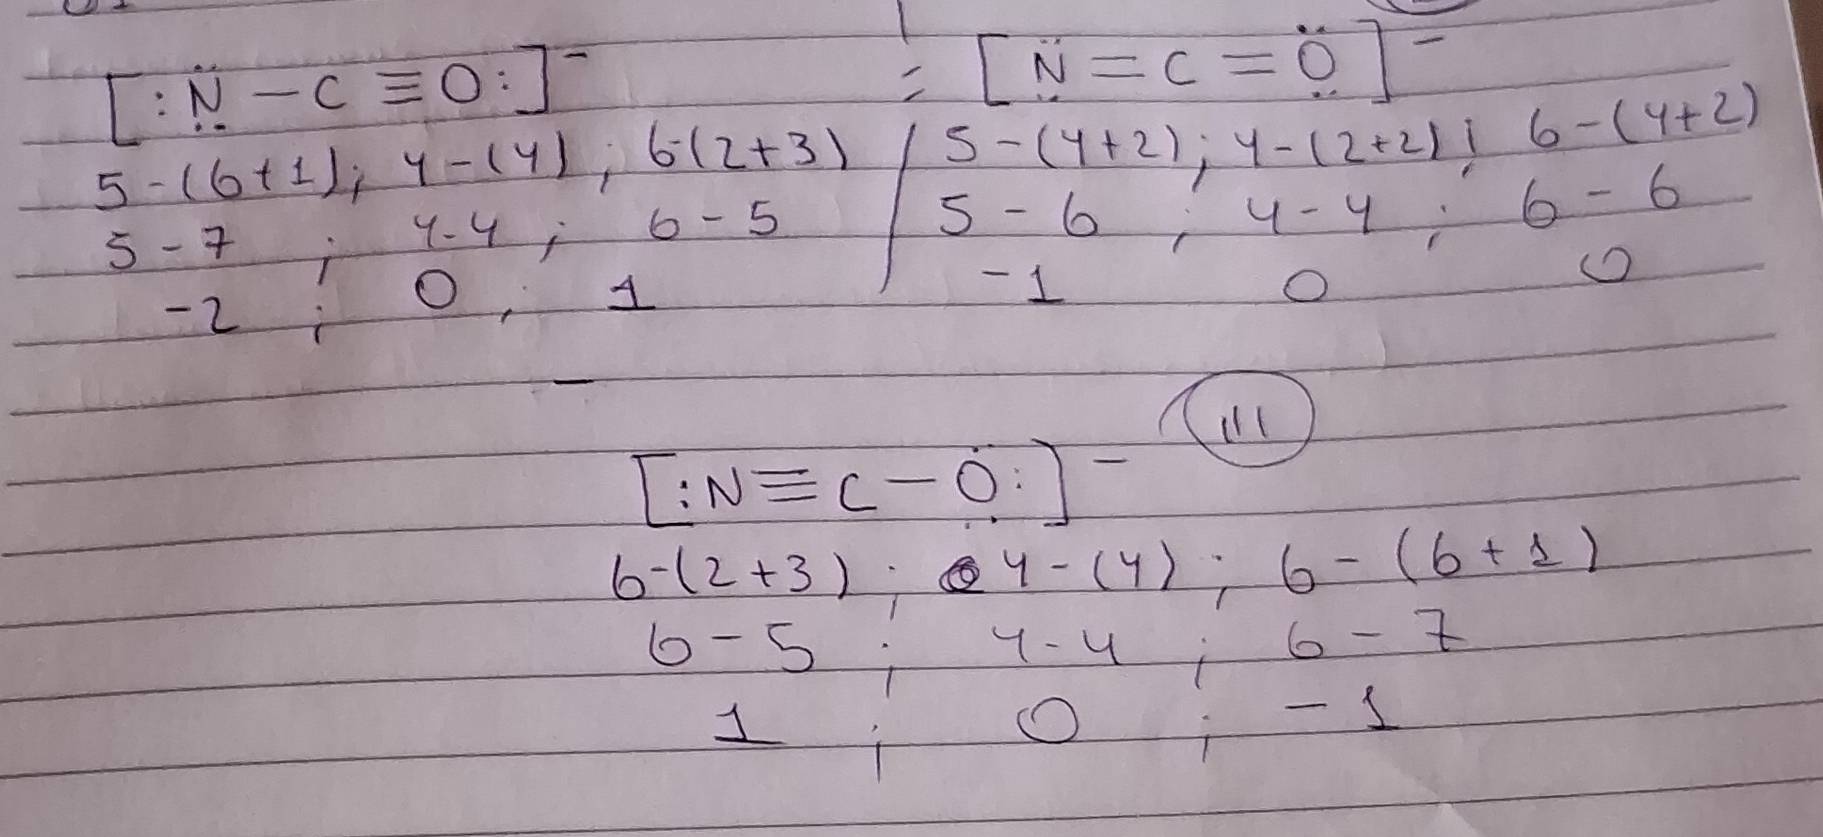 [:N̤̈ – C ≡ O:]⁻ = [N̤̈ = C = Ö̤]⁻
5-(6+1); 4-(4); 6-(2+3) / 5-(4+2); 4-(2+2); 6-(4+2)
5-7 ; 4-4 ; 6-5 / 5-6 ; 4-4 ; 6-6
-2 ; 0 ; 1 / -1 0 0
III
[:N ≡ C – Ö̤:]⁻
6-(2+3) ; 4-(4) ; 6-(6+1)
6-5 ; 4-4 ; 6-7
1 ; 0 ; -1